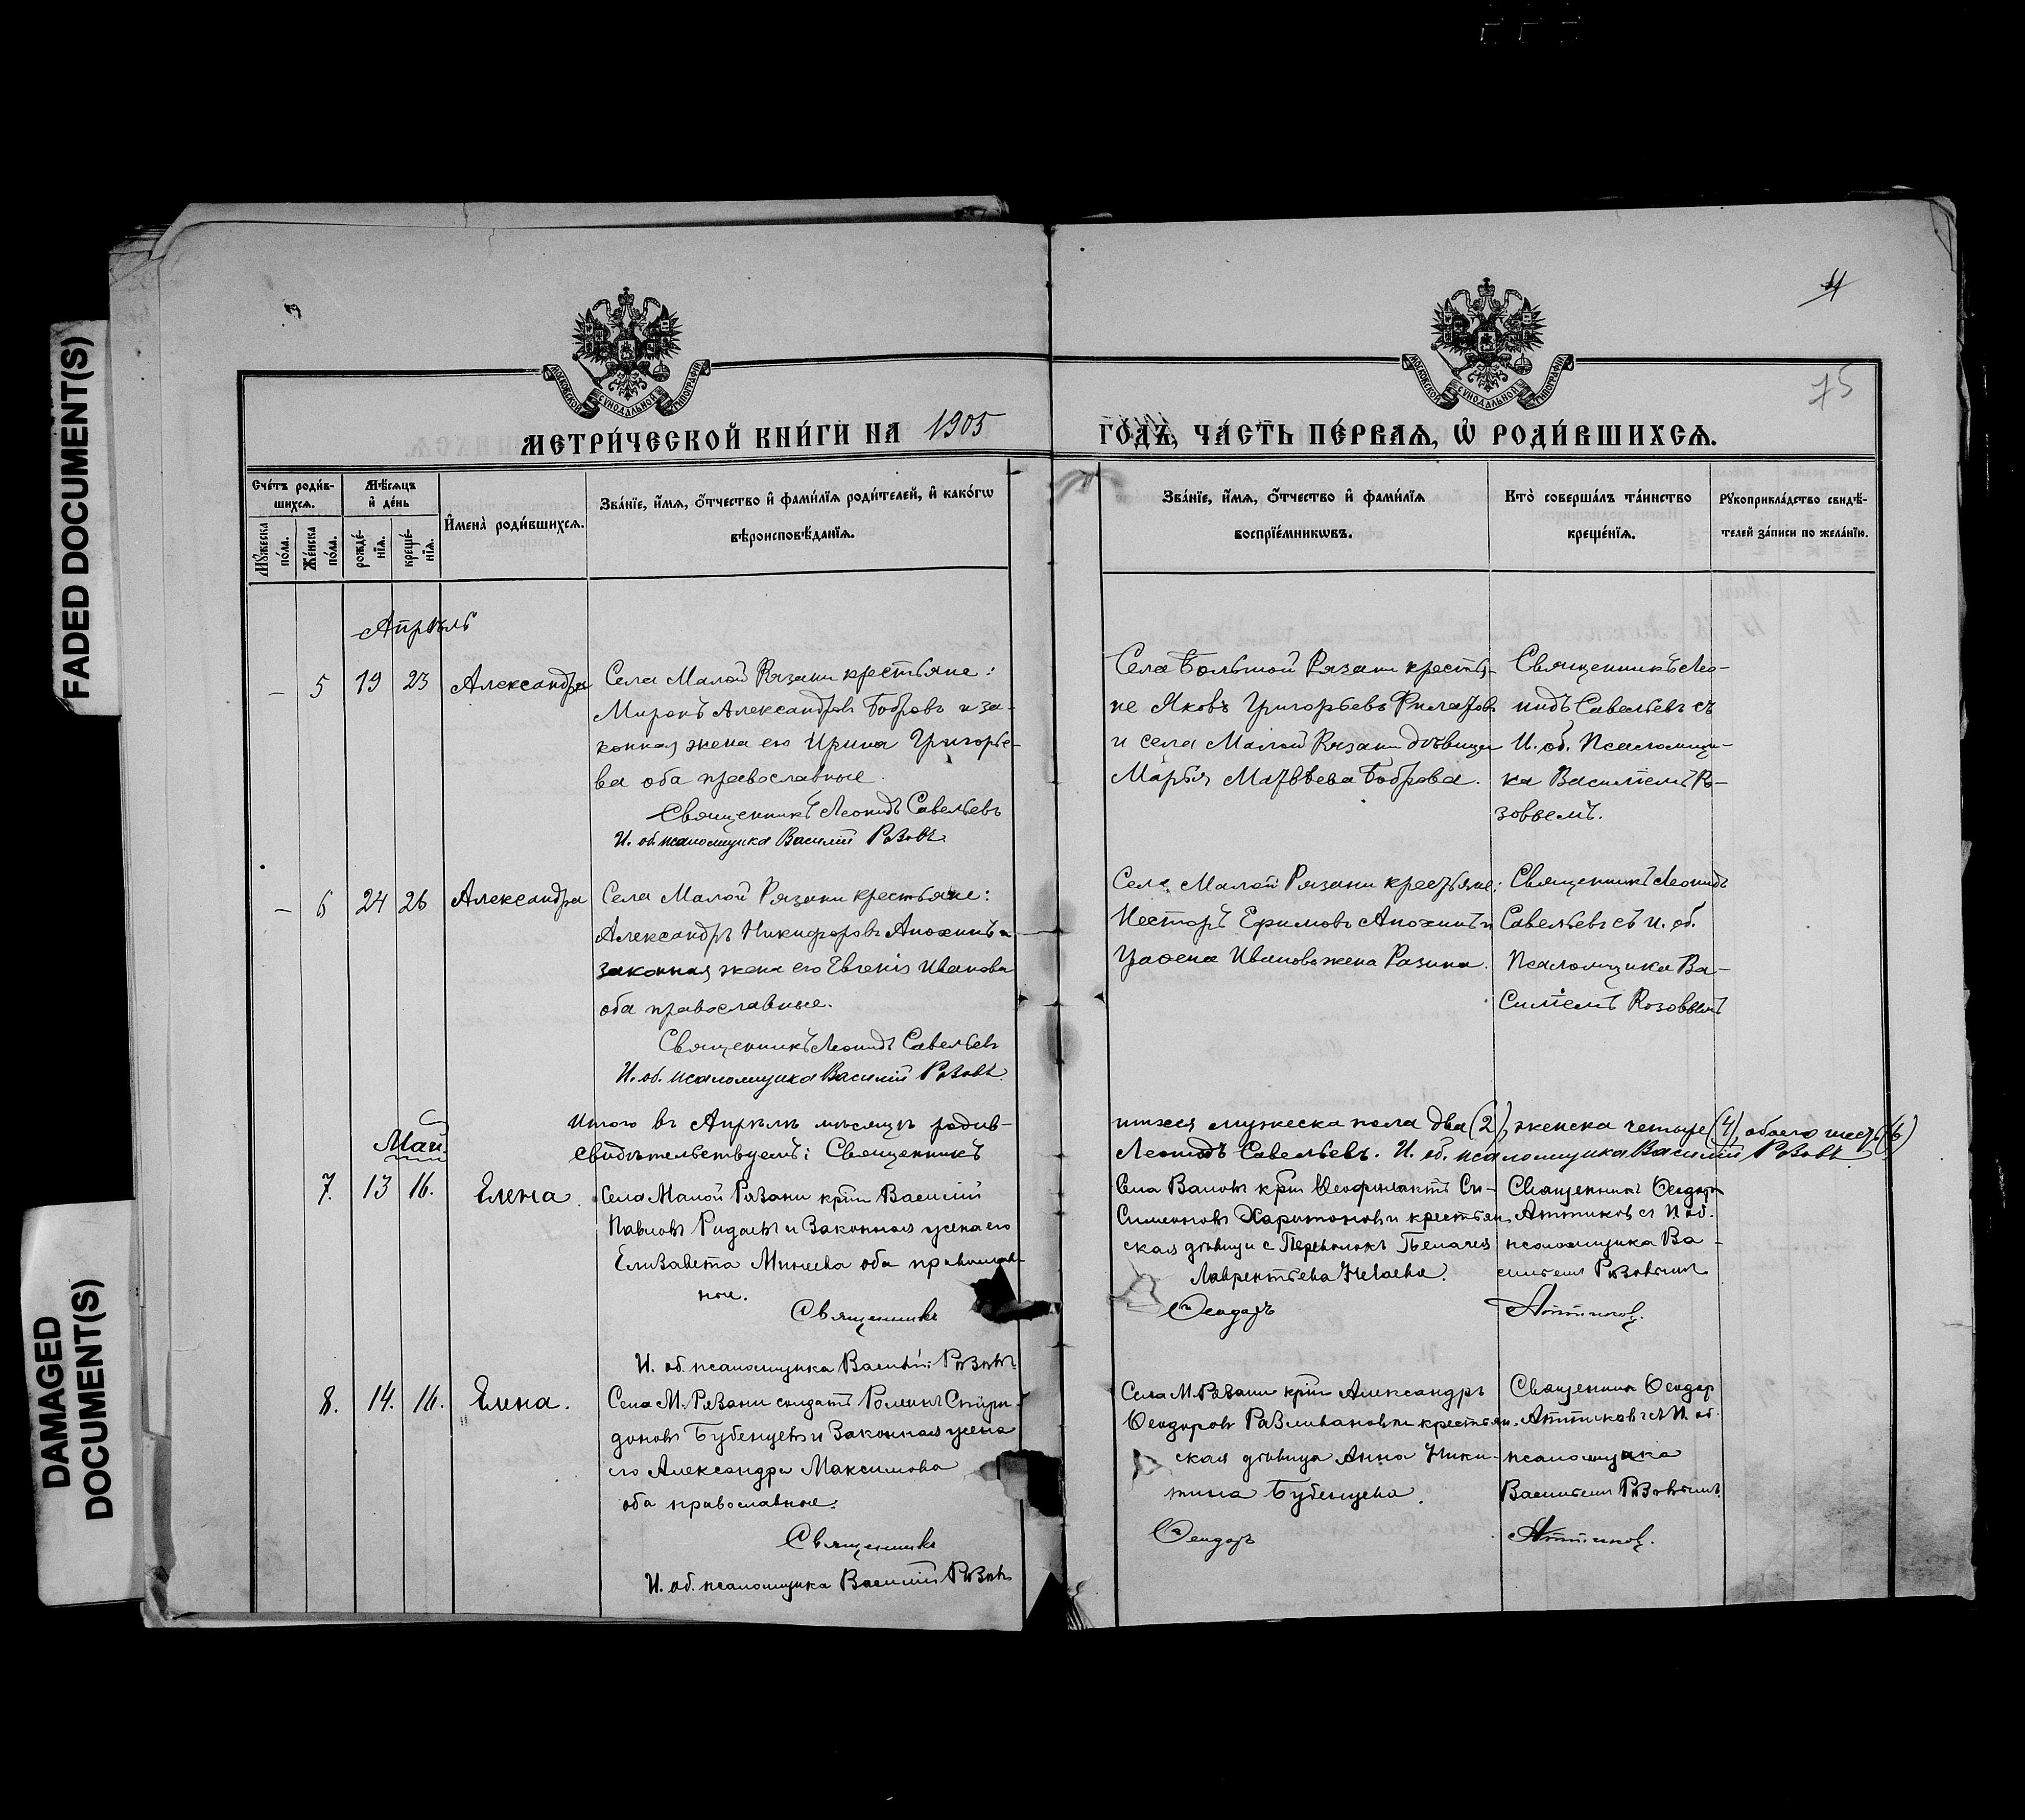 FADED DOCUMENT(S)
DAMAGED
DOCUMENT(S)
4
75
МОСКОВСКОЙ СѴНОДАЛЬНОЙ ТИПОГРАФІИ
МОСКОВСКОЙ СѴНОДАЛЬНОЙ ТИПОГРАФІИ
МЕТРИ́ЧЕСКОЙ КНИ́ГИ НА 1905 ГО́ДЪ, ЧА́СТЬ ПЕ́РВАѦ, Ѽ РОДИ́ВШИХСѦ.
Сче́тъ роди́в-
шихсѧ.
Мꙋ́жеска по́ла.
Же́нска по́ла.
Мѣ́сѧцъ
и҆ де́нь
рожде́-
нїѧ.
креще́-
нїѧ.
И҆мена̀ роди́вшихсѧ.
Зва́нїе, и҆́мѧ, ѻ҆́тчество и҆ фами́лїѧ роди́телей, и҆ како́гѡ
вѣроисповѣ́данїѧ.
Зва́нїе, и҆́мѧ, ѻ҆́тчество и҆ фами́лїѧ
воспрїе́мникѡвъ.
Кто̀ соверша́лъ та́инство
креще́нїѧ.
Рꙋкоприкла́дство свидѣ́-
телей за́писи по жела́нїю.
Апрѣль
— 5 19 23 Александра
Села Малой Рязани крестьяне:
Миронъ Александровъ Бобровъ и за-
конная жена его Ирина Григорье-
ва оба православные.
Священникъ Леонидъ Савельевъ
И. об. псаломщика Василій Розовъ.
Села Большой Рязани крестья-
не Яковъ Григорьевъ Филатовъ
и села Малой Рязани дѣвица
Марья Матвѣева Боброва.
Священникъ Лео-
нидъ Савельевъ съ
И. об. Псаломщи-
ка Василіемъ Ро-
зовымъ.
— 6 24 26 Александра
Села Малой Рязани крестьяне:
Александръ Никифоровъ Анохинъ и
законная жена его Евгенія Иванова
оба православные.
Священникъ Леонидъ Савельевъ
И. об. псаломщика Василій Розовъ.
Села Малой Рязани крестьяне:
Несторъ Ефимовъ Анохинъ и
Ивановa жена Разина.
Священникъ Леонидъ
Савельевъ съ И. об.
Псаломщика Ва-
силіемъ Розовымъ
Итого въ Апрѣлѣ мѣсяцѣ родив-
шихся мужеска пола два (2), женска четыре (4), обоего шесть (6)
свидѣтельствуемъ: Священникъ
Леонидъ Савельевъ. И. об. псаломщика Василій Розовъ.
Май.
7. 13 16. Елена.
Села Малой Рязани крн Василій
Павловъ и законная жена его
Елизавета Минеева оба православ-
ные.
Священникъ
И. об. псаломщика Василій Розовъ.
Села Валовъ крн Ѳеофилактъ Си-
Симеоновъ Харитоновъ и крестьян
ская дѣвица с Переволокъ Пелагея
Лаврентьева Нечаева.
Ѳеодоръ
Священникъ Ѳеодоръ
Аттиковъ съ И. об.
псаломщика Ва-
силіемъ Розовымъ
Аттиковъ.
8. 14. 16. Елена.
Села М. Рязани солдатъ Романъ Спири-
доновъ Бубенцевъ и законная жена
его Александра Максимова
оба православные.
Священникъ
И. об. псаломщика Василій Розовъ
Села М. Рязани крн Александръ
Ѳеодоровъ и крестьян-
ская дѣвица Анна Ники-
тина Бубенцева.
Ѳеодоръ
Священник Ѳеодор
Аттиковъ съ И. об.
псаломщика
Василіемъ Розовымъ.
Аттиковъ.